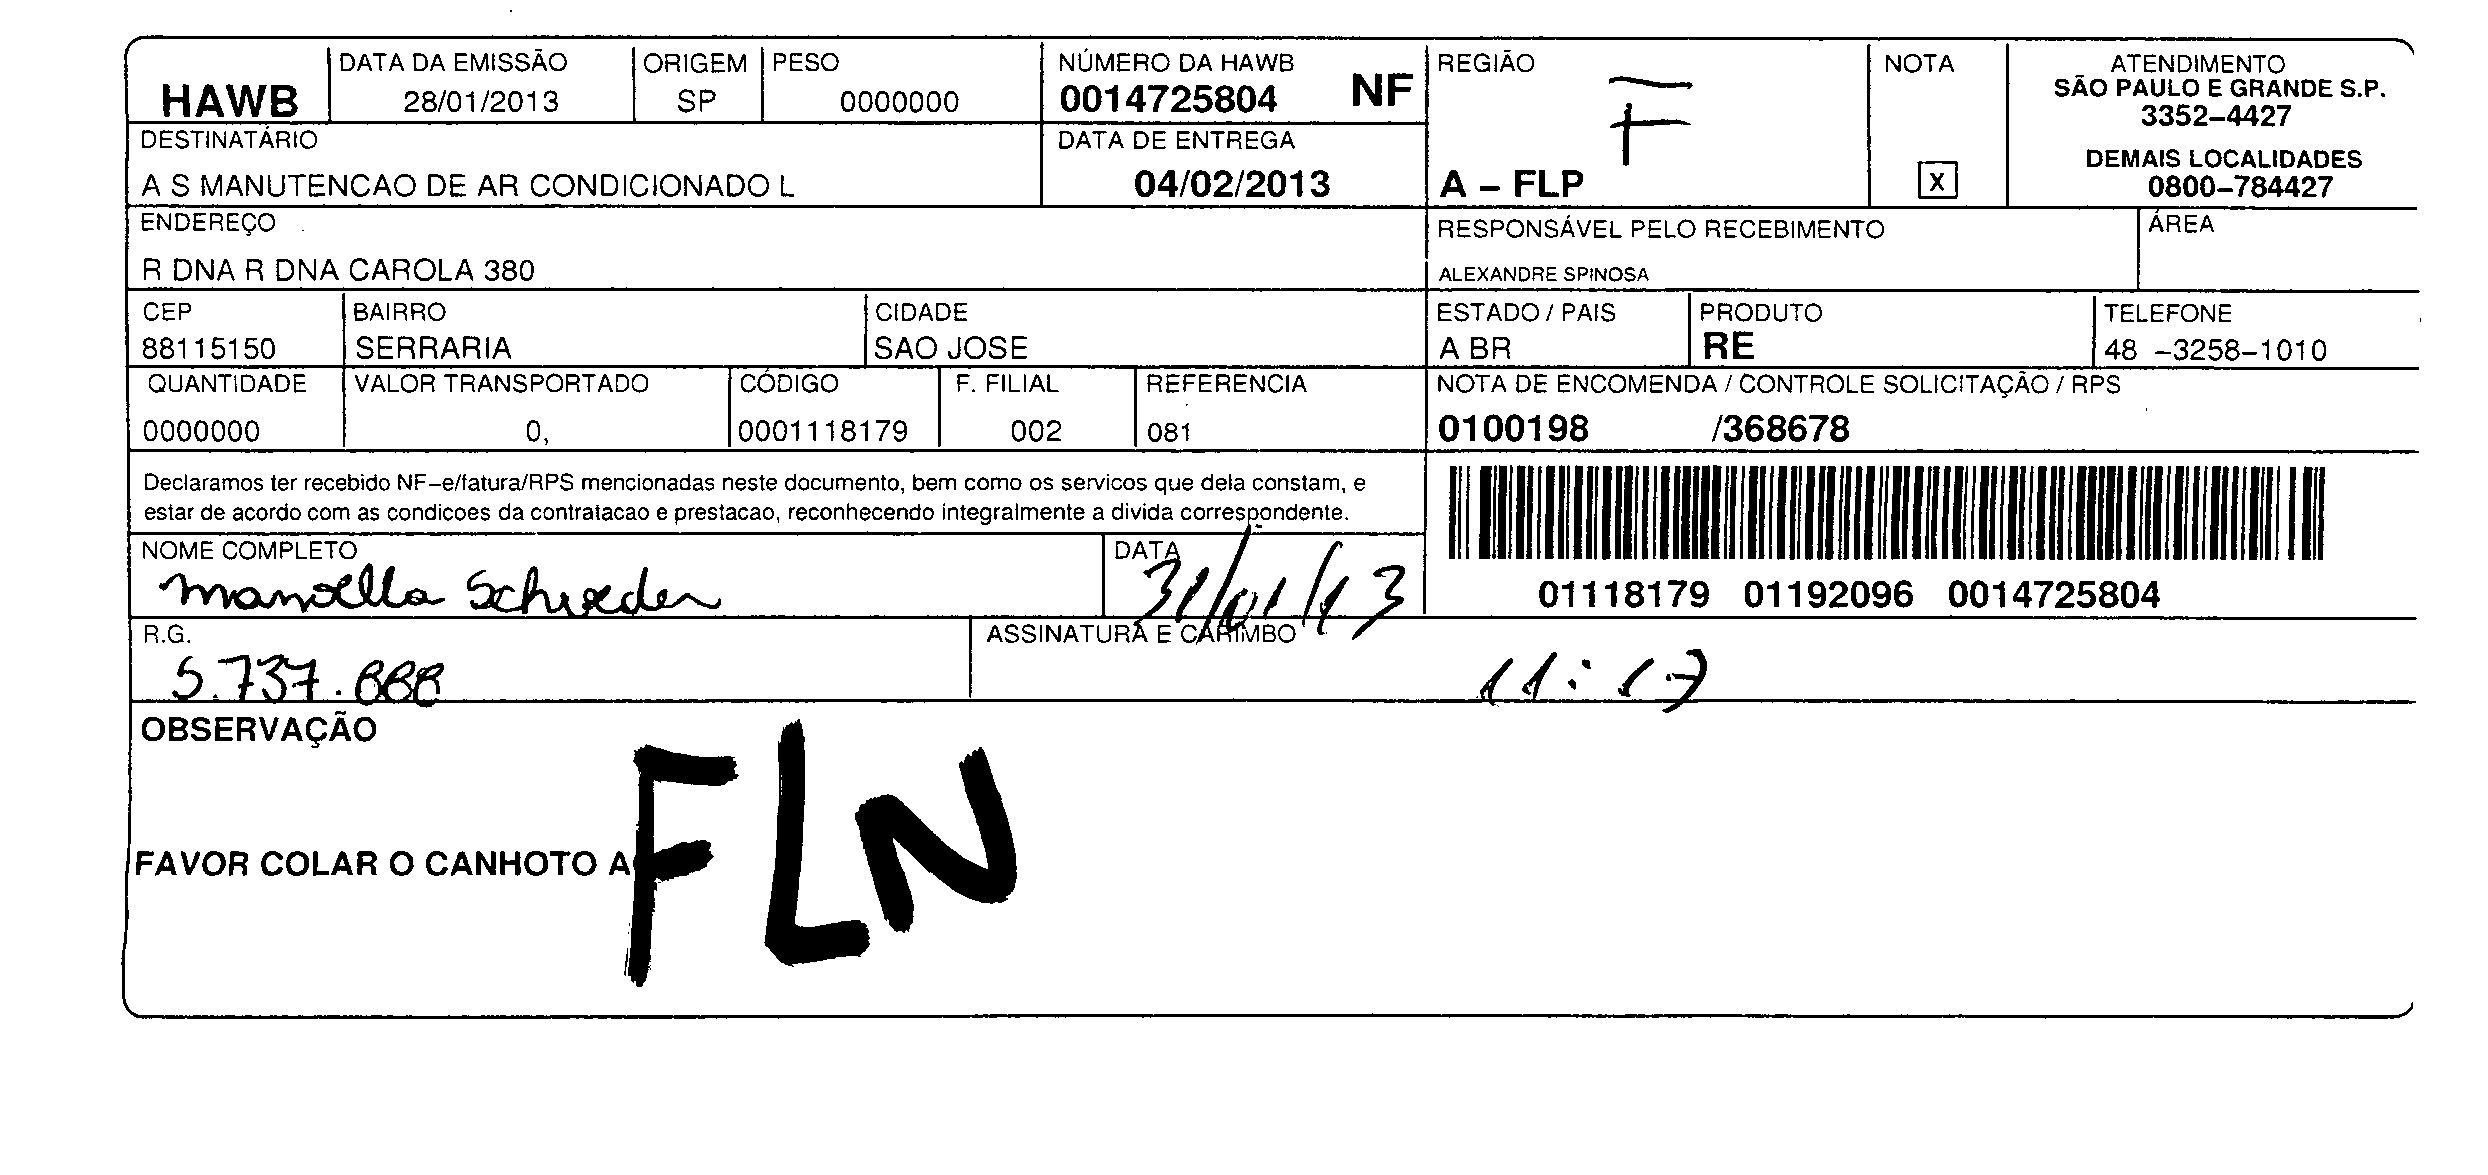 HAWB
DATA DA EMISSÃO
28/01/2013
ORIGEM
SP
PESO
0000000
NÚMERO DA HAWB
0014725804 NF
REGIÃO
F
A – FLP
NOTA
X
ATENDIMENTO
SÃO PAULO E GRANDE S.P.
3352–4427
DEMAIS LOCALIDADES
0800–784427
DESTINATÁRIO
A S MANUTENCAO DE AR CONDICIONADO L
DATA DE ENTREGA
04/02/2013
ENDEREÇO
R DNA R DNA CAROLA 380
RESPONSÁVEL PELO RECEBIMENTO
ALEXANDRE SPINOSA
ÁREA
CEP
88115150
BAIRRO
SERRARIA
CIDADE
SAO JOSE
ESTADO / PAIS
A BR
PRODUTO
RE
TELEFONE
48 –3258–1010
QUANTIDADE
0000000
VALOR TRANSPORTADO
0,
CÓDIGO
0001118179
F. FILIAL
002
REFERENCIA
081
NOTA DE ENCOMENDA / CONTROLE SOLICITAÇÃO / RPS
0100198 /368678
Declaramos ter recebido NF–e/fatura/RPS mencionadas neste documento, bem como os servicos que dela constam, e
estar de acordo com as condicoes da contratacao e prestacao, reconhecendo integralmente a divida correspondente.
01118179 01192096 0014725804
NOME COMPLETO
Manoella Schroeder
DATA
31/01/13
R.G.
5.737.888
ASSINATURA E CARIMBO
11:17
OBSERVAÇÃO
FAVOR COLAR O CANHOTO A
FLN